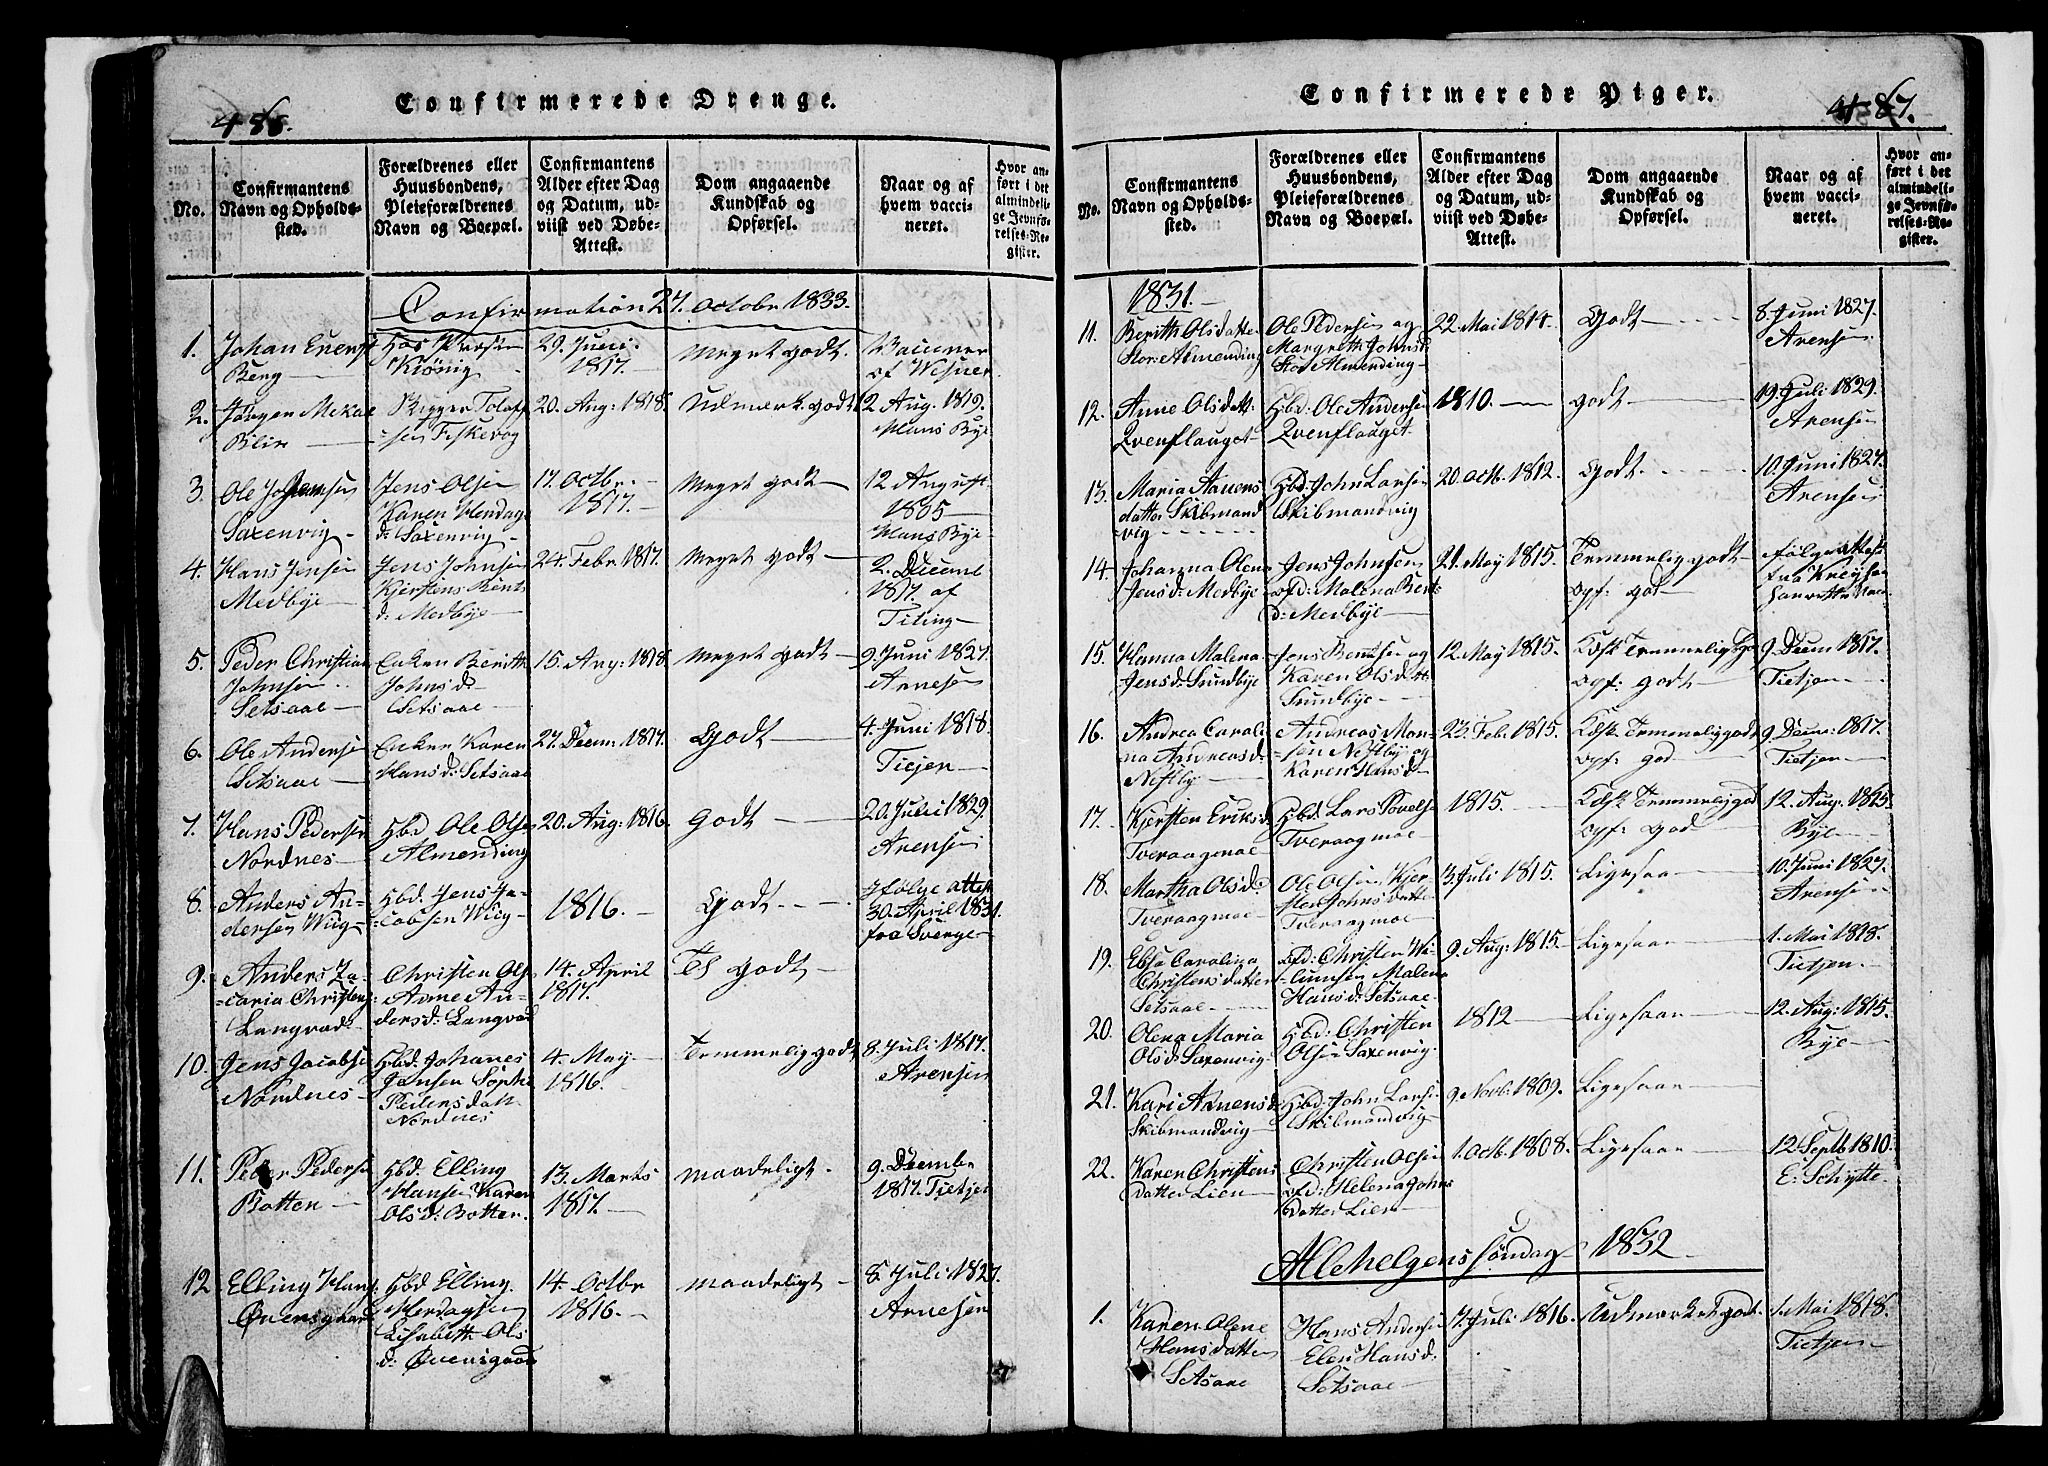 Confirmerede Drenge.
486.
No.
Confirmantens
Navn og Opholds-
sted.
Forældrenes eller
Huusbondens,
Pleieforældrenes
Navn og Boepæl.
Confirmantens
Alder efter Dag
og Datum, ud-
viist ved Døbe-
Attest.
Dom angaaende
Kundskab og
Opførsel.
Naar og af
hvem vacci-
neret.
Hvor an-
ført i det
almindeli-
ge Jevnfø-
relses-Re-
gister.
Confirmation 27. Octobr. 1833.
1.
Johan
Berg
29. Juni
1817.
Meget godt.
af
2.
Jørgen Mekal
Blix
Tolof-
sen Fiskevog
20. Aug: 1818.
Udmærk. godt
2 Aug. 1819.
Hans Bye
3
Ole Johansen
Saxenvig
Jens Olsen
Karen Hendags
d: Saxenvig
17. Octbr.
1817.
Meget godt
12 August
1805
Hans Bye
4.
Hans Jensen
Medbye
Jens Johnsen
Kjerstens Bent
d: Medbye
24. Febr 1817.
Meget godt
2. Decemb
1817. af
Titing
5.
Peder Christian
Johnsen
Setsaae
Enken Berith
Johnsd
Setsaae
15. Aug: 1818.
Meget godt
9. Juni 1827.
Arnesen
6
Ole Andersen
Setsaae
Enken Karen
Hansd: Setsaae
27. Decm: 1817.
Godt
4. Juni 1818.
Tiejen
7.
Hans Pedersen
Nordnes
Hbd Ole Olsen
Almending
20. Aug: 1816.
Godt
20. Juli 1829.
Arensen
8.
Anders An-
dersen Wiig
Hbd. Jens Ja-
cobsen Wiig
1816.
Godt
Ifølge attest
30. April 1831.
fra Sverge
9.
Anders Za-
caria Christens
Langvad
Christen Ols
Anne An-
dersd: Langvad
14. April
1817.
TS godt
10.
Jens Jacobsen
Nordnes
Hbd. Johanes
Jensen Sophe
Pedersdatt
Nordnes
4. May
1816.
Temmelig godt
8. Juli 1817.
Arensen
11.
Peder Pedersen
Botten
Hbd. Elling
Hansen Karen
Olsd: Botten.
13. Marts
1817.
maadeligt.
9. Decembr
1817. Tietjen
12
Elling Hans
Hbd Elling
Herdagsen
Lisabeth Ols
d: Øvensgaard
14. Octbr
1816.
maadeligt
8. Juli 1827.
Arnesen
Confirmerede Piger.
487.
No.
Confirmantens
Navn og Opholds-
sted.
Forældrenes eller
Huusbondens,
Pleieforældrenes
Navn og Boepæl.
Confirmantens
Alder efter Dag
og Datum, ud-
viist ved Døbe-
Attest.
Dom angaaende
Kundskab og
Opførsel.
Naar og af
hvem vacci-
neret.
Hvor an-
ført i det
almindeli-
ge Jevnfø-
relses-Re-
gister.
1831.
11.
Berith Olsdatter
Stor: Almending
Ole Pedersen og
Margreth Johnsd
Stor Almending
22. Mai 1814.
Godt
8 Juni 1827.
Arensen
12.
Anne Olsdatt:
Qvenflauget
Hbd: Ole Andersen
Qvenflauget.
1810.
godt
19. Juli 1829.
Arensen
13.
Maria Aanens
datter Skibmand
vig
Hbd: John Larsen
Skibmandvig
20. Oct. 1812.
Godt.
10. Juni 1827.
Arensen
14.
Johanna Olena
Jensd: Medbye
Jens Johnsen
ofd: Malena Bent
D: Medbye
21. May 1815.
Temmelig godt
opf: god
følge attest
fra
15.
Hanna Malena
Jensd: Sundbye
Jens og
Karen Olsdatt
Sundbye
12. May 1815.
Kdsk Temmelig g
opf: godt
9. Decm 1817.
Tietjen
16.
Andrea Carali
na Andreasd:
Nestby
Andreas Mon-
sen Nestbye og
Karen Hansd
23. Feb. 1815.
Kdsk Temmelig godt
opf: god
9. Decm: 1817.
Tietjen
17.
Kjersten Eriksd:
Tveraagmoe
Hbd: Lars Povelse
Tveraagmoe
1815.
Kdsk Temmelig god
Opf: god
12. Aug: 1815.
Bye
18.
Martha Olsd:
Tveraagmoe
Ole Olsen, Kjer-
sten Johnsdatte
Tveraagmoe
3. Juli 1815.
Ligesaa
10. Juni 1827.
Arensen
19.
Ebsa Caralina
Christensdatter
Setsaae
ofd: Christen Wi-
Malena
Hansd: Setsaae
9. Aug: 1815.
Ligesaa
1. Mai 1818.
Tietjen.
20.
Olena Maria
Olsd: Saxenvig
Hbd: Christen
Olsen Saxenvig
1812
Ligesaa
12. Aug: 1815.
Bye
21.
Kari Aanensd:
Skibmandvig
Hbd: John Larsen
Skibmandvig
9. Novb: 1809.
Ligesaa
22.
Karen Christens
datter Lien
Christen Olsen
ofd: Helena Johns
datter Lien
1. Oct. 1808.
Ligesaa
12 Septb 1810.
E. Schytte
Allehelgens søndag 1832
1.
Karen Olene
Hansdatter
Setsaae
Hans Andersen
Elen Hansd.
Setsaae
7. Juli 1816.
Udmærket godt.
1. Mai 1818.
Tietjen